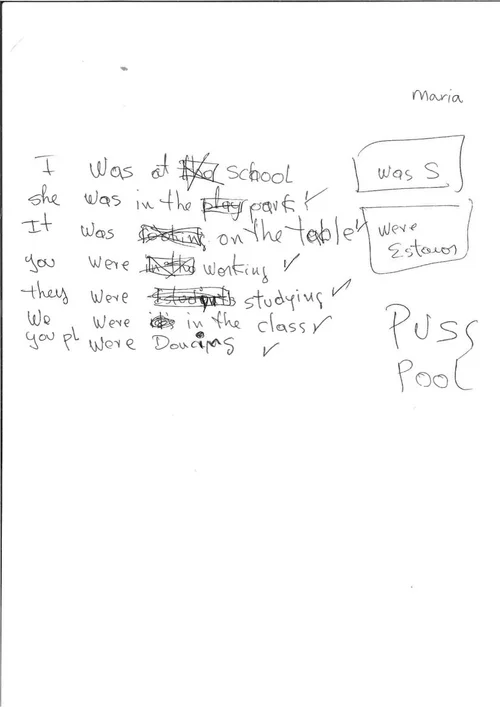 Maria
I was at the school
she was in the play park ✓
It was on the table ✓
you were in the working ✓
they were students studying ✓
We were in the class ✓
you pl were Doucing ✓
was S
were
Estavor
PUSS
POOL